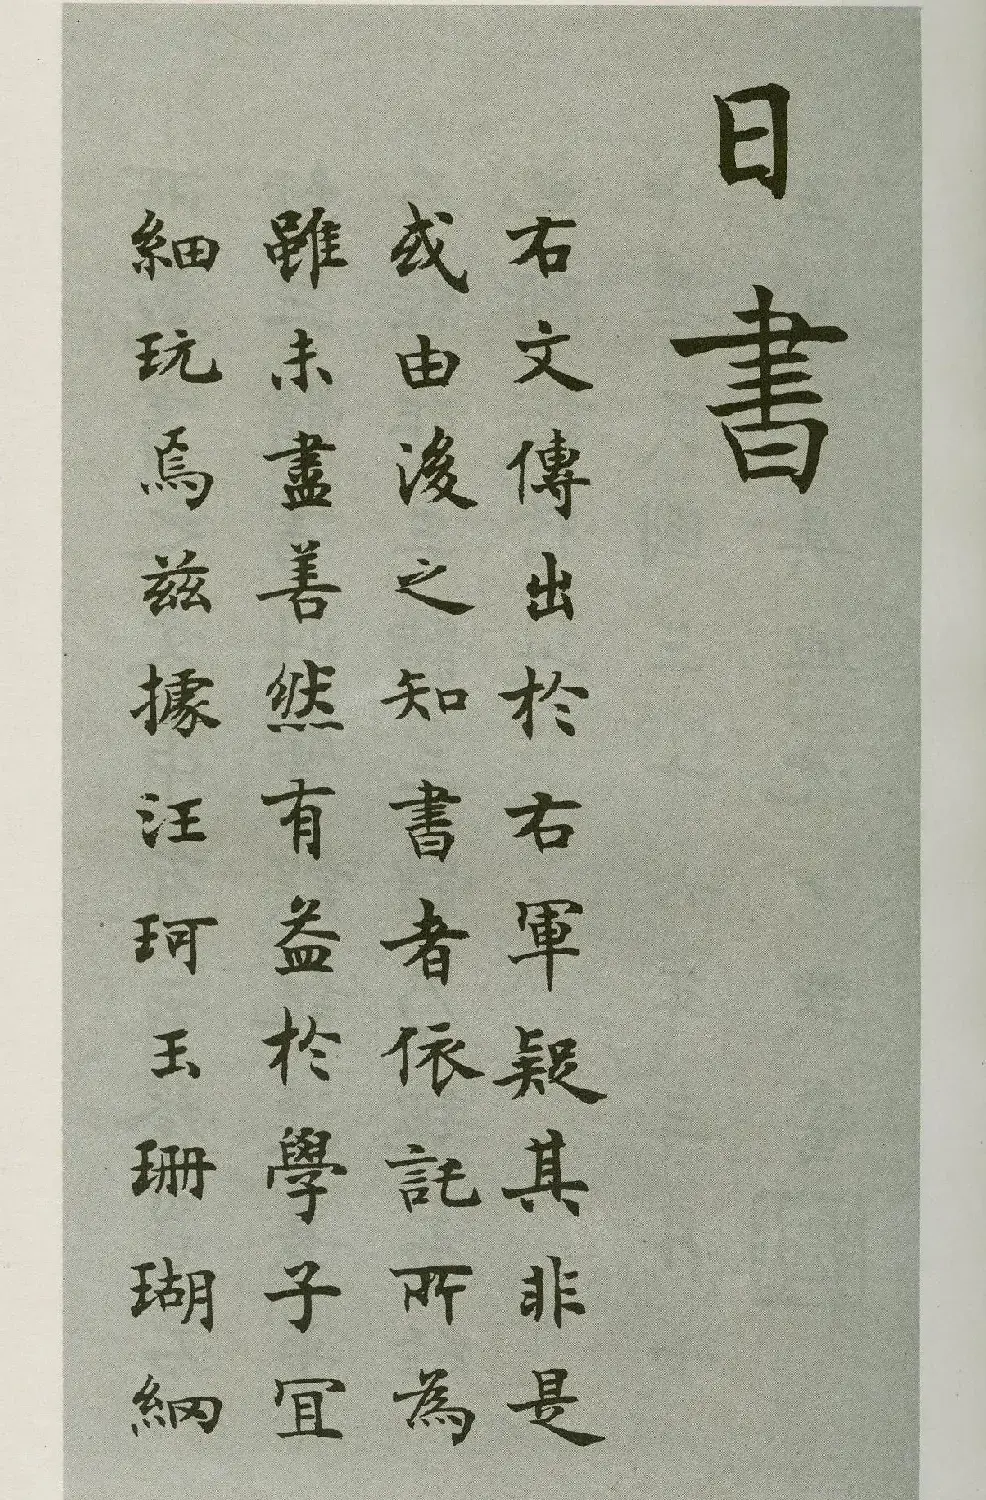 日書
右文傳出於右軍疑其非是
或由後之知書者依託所為
雖未盡善然有益於學子宜
細玩焉兹據汪珂玉珊瑚網